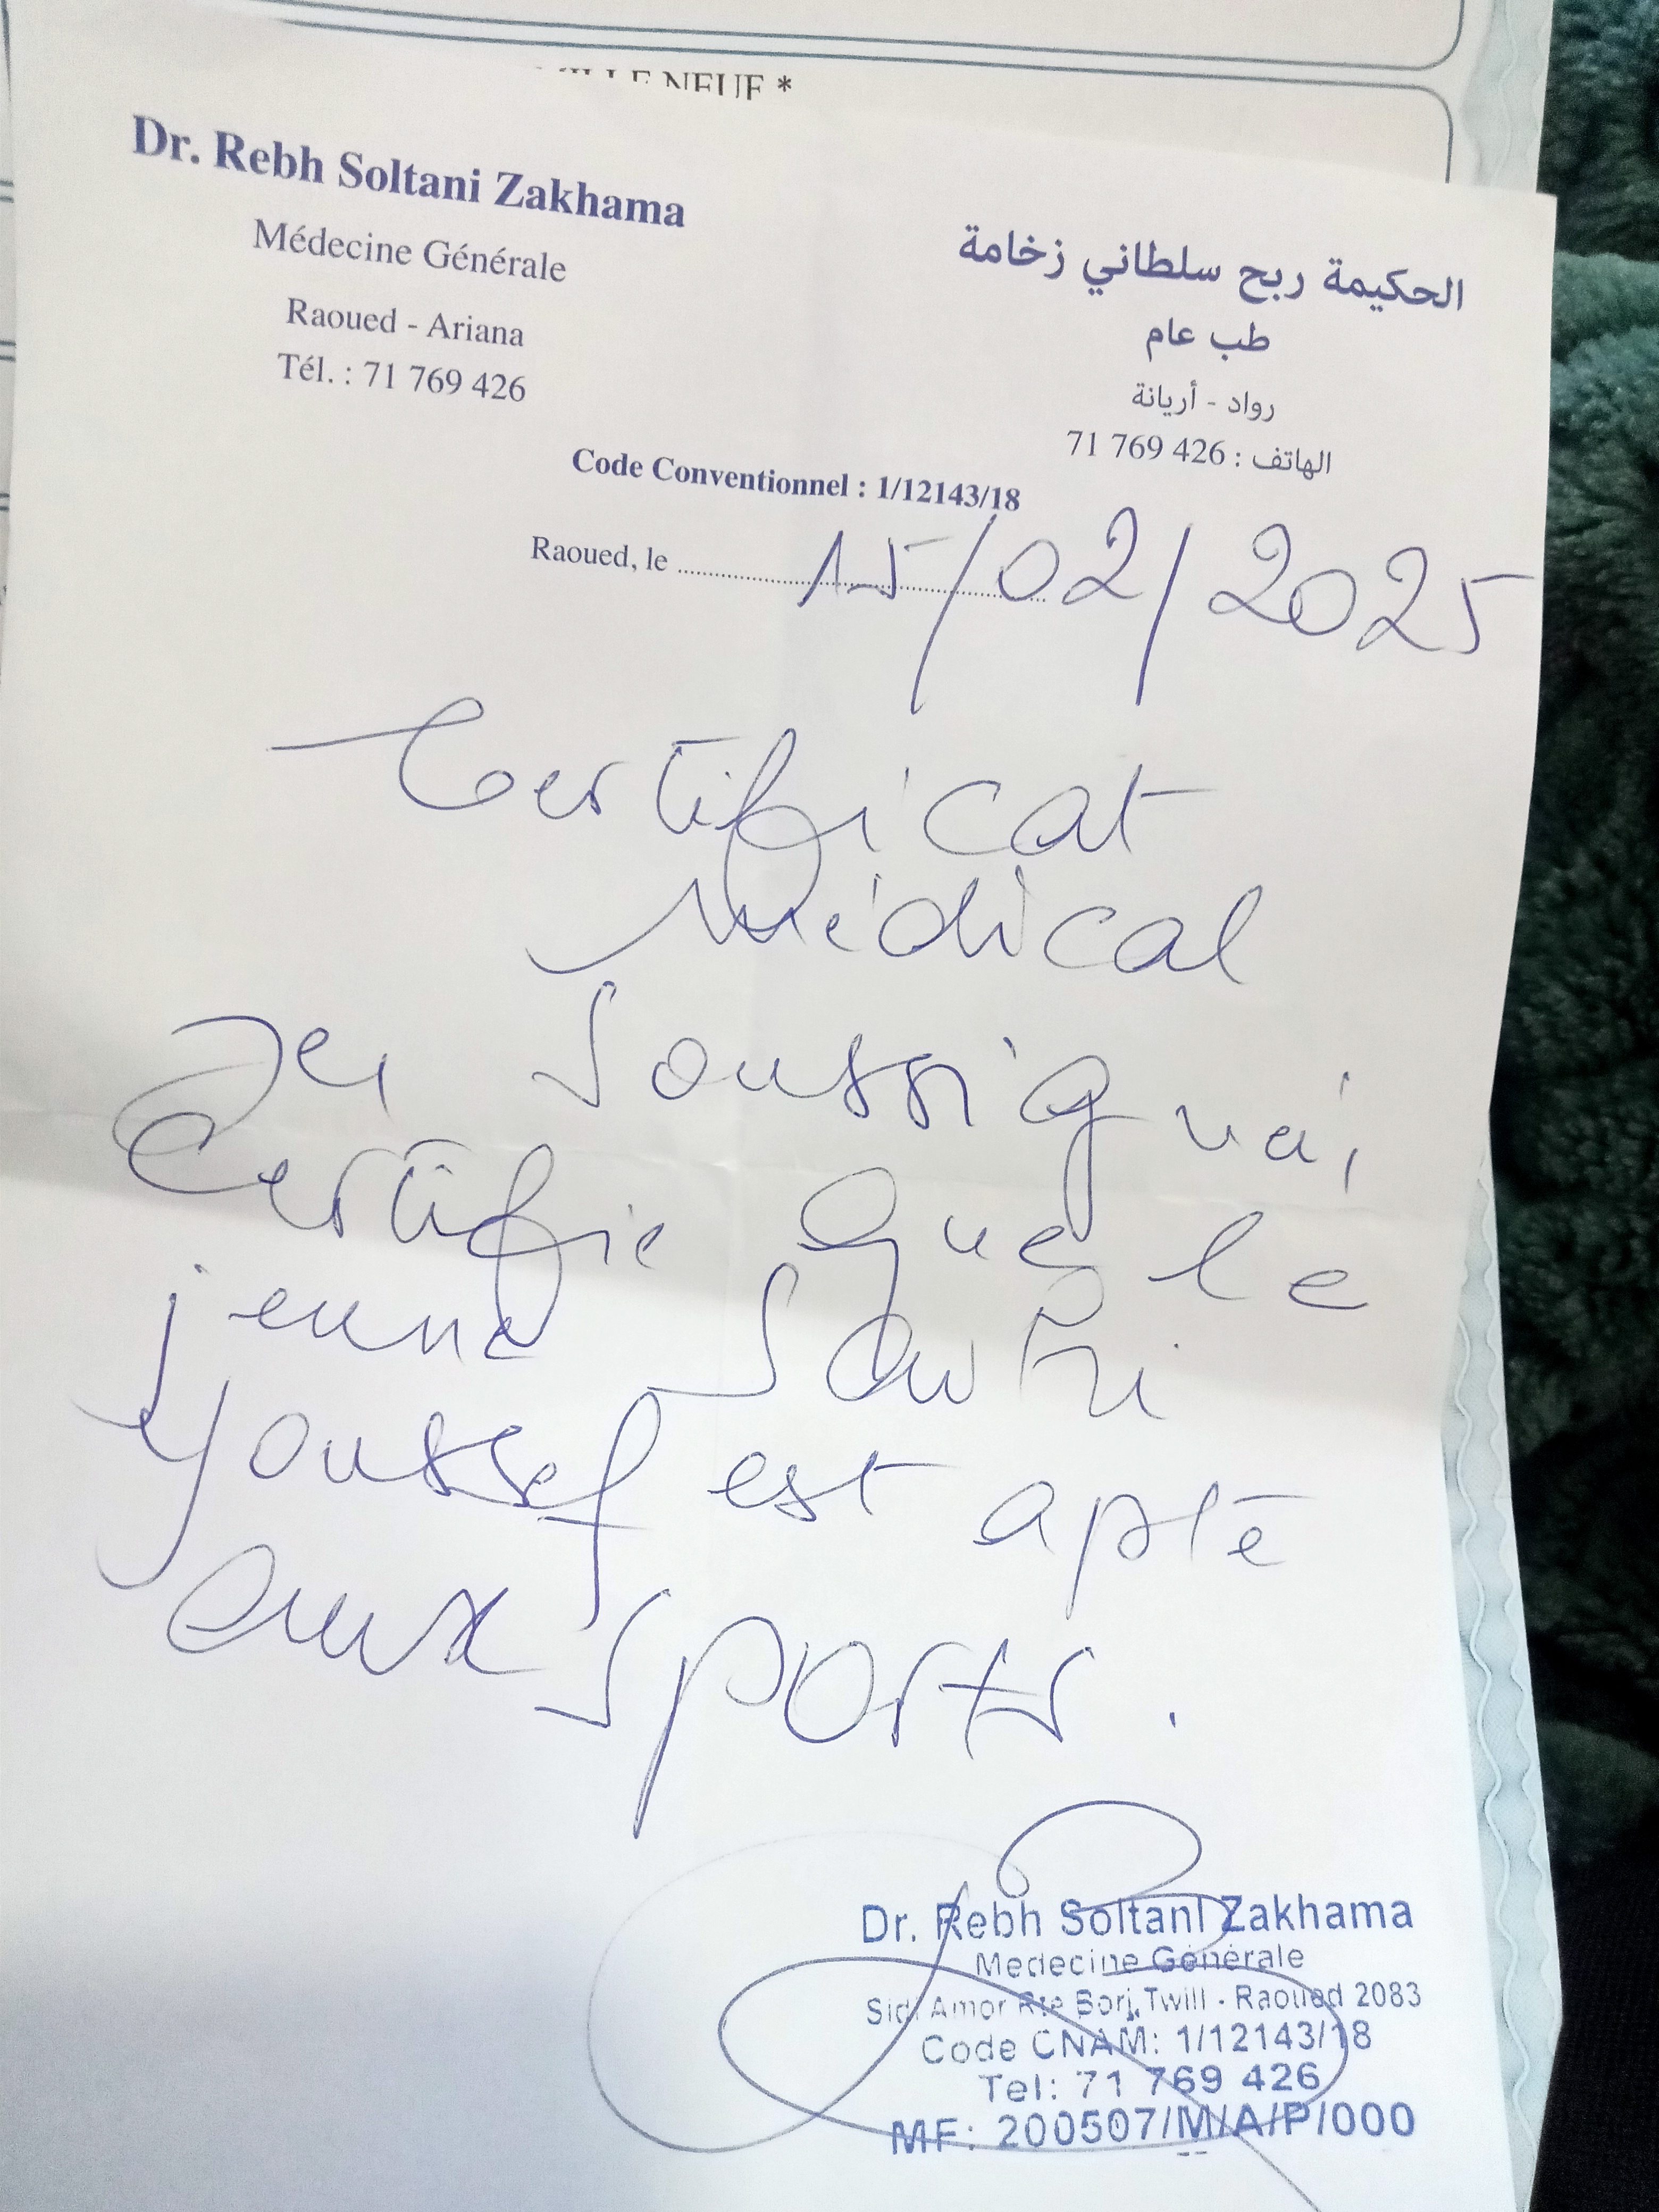 NEUF *
Dr. Rebh Soltani Zakhama
Médecine Générale
Raoued - Ariana
Tél. : 71 769 426
الحكيمة ربح سلطاني زخامة
طب عام
رواد - أريانة
الهاتف : 426 769 71
Code Conventionnel : 1/12143/18
Raoued, le 15/02/2025
Certificat
Médical
Je, Soussigné,
Certifie que le
jeune
Youssef est apte
aux Sports.
Dr. Rebh Soltani Zakhama
Medecine Générale
Sidi Amor Rte Borj Twill - Raoued 2083
Code CNAM: 1/12143/18
Tel: 71 769 426
MF: 200507/M/A/P/000